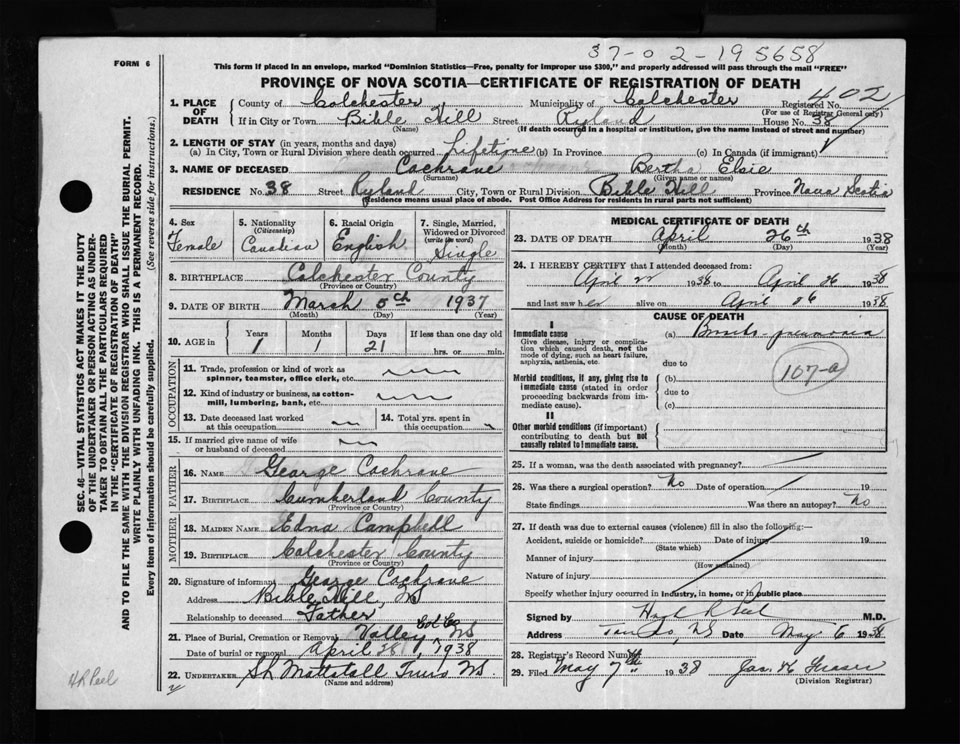 37-02-195658
FORM 6
This form if placed in an envelope, marked "Dominion Statistics—Free, penalty for improper use $300," and properly addressed will pass through the mail "FREE"
PROVINCE OF NOVA SCOTIA—CERTIFICATE OF REGISTRATION OF DEATH
402
1. PLACE OF DEATH County of Colchester Municipality of Colchester Registered No.
(For use of Registrar General only)
If in City or Town Bible Hill Street Ryland House No. 38
(Name) (If death occurred in a hospital or institution, give the name instead of street and number)
2. LENGTH OF STAY (in years, months and days)
(a) In City, Town or Rural Division where death occurred Lifetime (b) In Province (c) In Canada (if immigrant)
3. NAME OF DECEASED Cochrane Bertha Elsie
(Surname) (Given name or names)
RESIDENCE No. 38 Street Ryland City, Town or Rural Division Bible Hill Province Nova Scotia
(Residence means usual place of abode. Post Office Address for residents in rural parts not sufficient)
4. Sex Female
5. Nationality (Citizenship) Canadian
6. Racial Origin English
7. Single, Married, Widowed or Divorced (write the word) Single
8. BIRTHPLACE Colchester County
(Province or Country)
9. DATE OF BIRTH March 5th 1937
(Month) (Day) (Year)
10. AGE in Years 1 Months 1 Days 21 If less than one day old hrs. or min.
OCCUPATION
11. Trade, profession or kind of work as spinner, teamster, office clerk, etc.
12. Kind of industry or business, as cotton-mill, lumbering, bank, etc.
13. Date deceased last worked at this occupation
14. Total yrs. spent in this occupation
15. If married give name of wife or husband of deceased
FATHER
16. NAME George Cochrane
17. BIRTHPLACE Cumberland County
(Province or Country)
MOTHER
18. MAIDEN NAME Edna Campbell
19. BIRTHPLACE Colchester County
(Province or Country)
20. Signature of informant George Cochrane
Address Bible Hill, NS
Relationship to deceased Father
21. Place of Burial, Cremation or Removal Valley, Col Co, NS
Date of burial or removal April 28, 1938
22. UNDERTAKER Mattatall Truro NS
MEDICAL CERTIFICATE OF DEATH
23. DATE OF DEATH April 26th 1938
(Month) (Day) (Year)
24. I HEREBY CERTIFY that I attended deceased from:
April 22 1938 to April 26 1938
and last saw her alive on April 26 1938
CAUSE OF DEATH
I
Immediate cause (a) Broncho-pneumonia
Give disease, injury or complication which caused death, not the mode of dying, such as heart failure, asphyxia, asthenia, etc.
due to
107-a
Morbid conditions, if any, giving rise to immediate cause (stated in order proceeding backwards from immediate cause). (b)
due to
(c)
II
Other morbid conditions (if important) contributing to death but not causally related to immediate cause.
25. If a woman, was the death associated with pregnancy?
26. Was there a surgical operation? No Date of operation 19
State findings Was there an autopsy? No
27. If death was due to external causes (violence) fill in also the following:—
Accident, suicide or homicide? Date of injury 19
(State which)
Manner of injury
(How sustained)
Nature of injury
Specify whether injury occurred in industry, in home, or in public place
Signed by H R Peel M.D.
Address Truro, NS Date May 6 1938
28. Registrar's Record Number
29. Filed May 7th 1938 Jas. Fraser
(Division Registrar)
SEC. 46—VITAL STATISTICS ACT MAKES IT THE DUTY
OF THE UNDERTAKER OR PERSON ACTING AS UNDER-
TAKER TO OBTAIN ALL THE PARTICULARS REQUIRED
IN THE "CERTIFICATE OF REGISTRATION OF DEATH"
AND TO FILE THE SAME WITH THE DIVISION REGISTRAR WHO SHALL ISSUE THE BURIAL PERMIT.
WRITE PLAINLY WITH UNFADING INK. THIS IS A PERMANENT RECORD.
Every item of information should be carefully supplied. (See reverse side for instructions.)
H R Peel